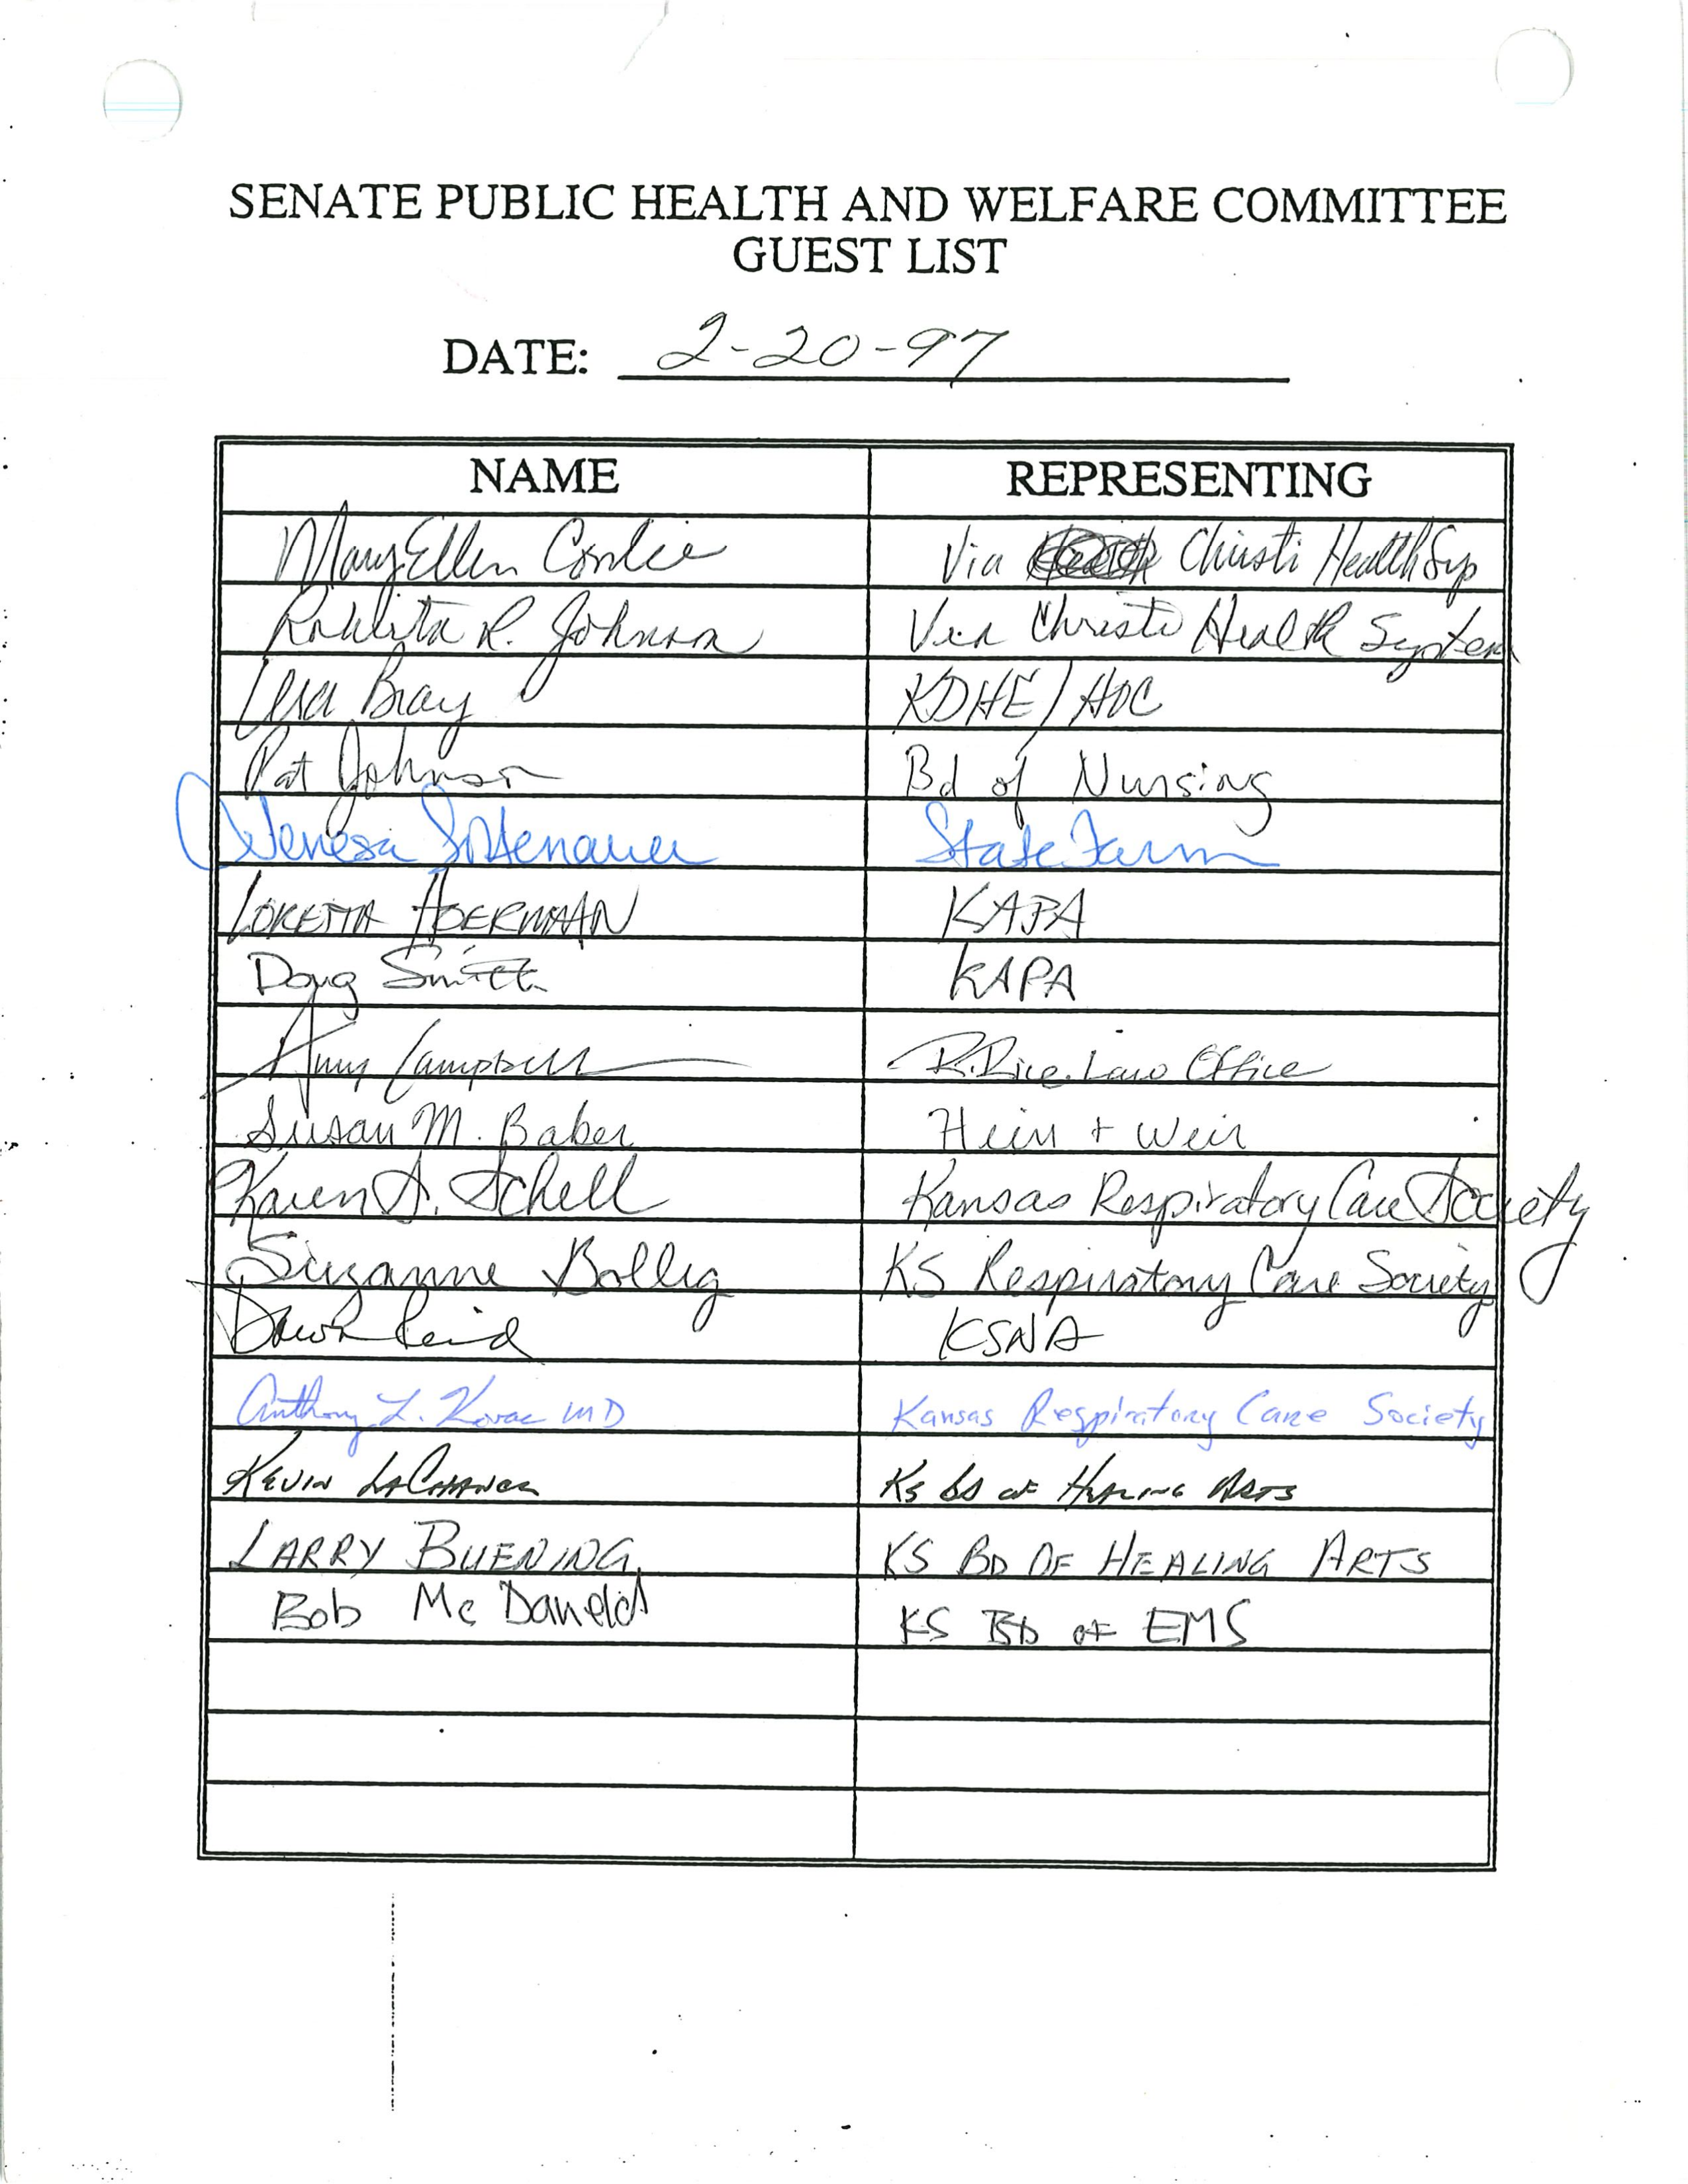 SENATE PUBLIC HEALTH AND WELFARE COMMITTEE
GUEST LIST
DATE: 2-20-97
NAME REPRESENTING
Mary Ellen Conlee Via Christi Health Sys
R. Johnson Via Christi Health System
Lesa Bray KDHE/HOC
Pat Johnson Bd of Nursing
State Farm
LORETTA HOERMAN KAPA
Doug Smith KAPA
Amy Campbell R. Rice Law Office
Susan M. Baker Hein + Weir
Karen A. Schell Kansas Respiratory Care Society
Suzanne Bollig KS Respiratory Care Society
Dawn Reid KSNA
Anthony L. Kovac MD Kansas Respiratory Care Society
KEVIN LACHANCE KS BD OF HEALING ARTS
LARRY BUENING KS BD OF HEALING ARTS
Bob McDaneld KS BD OF EMS